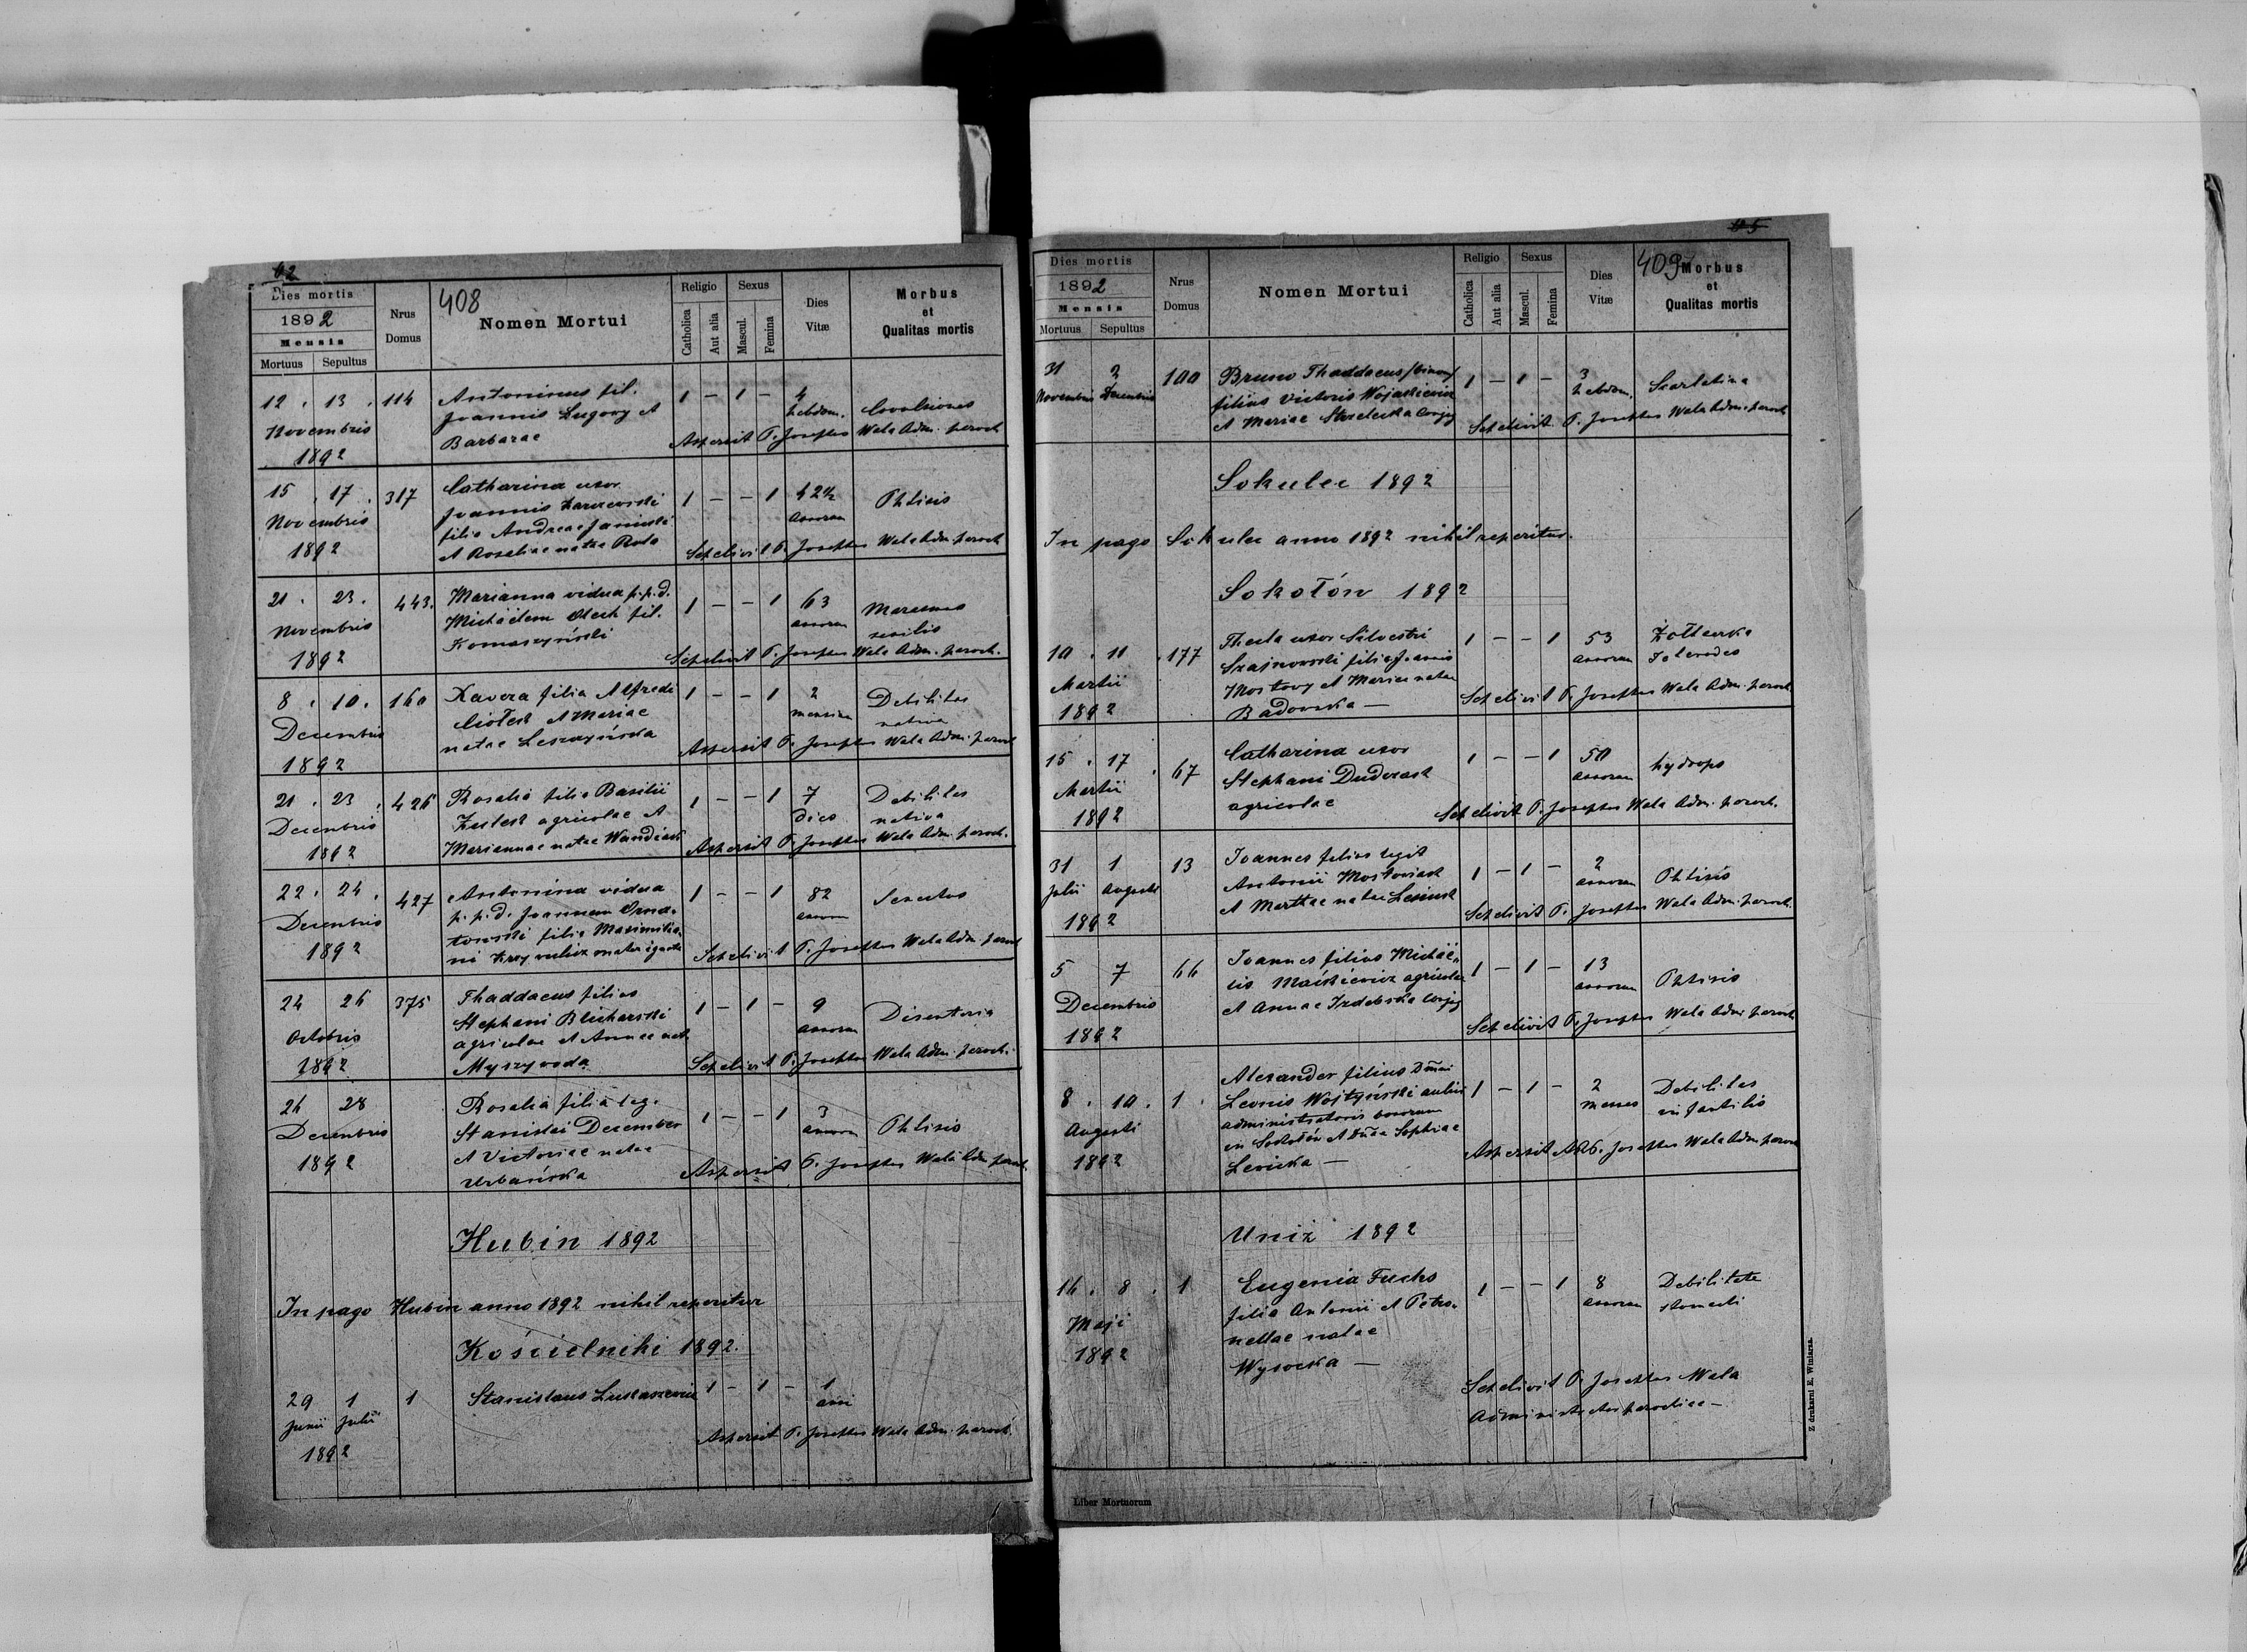 62
408
Dies mortis
1892
Mensis
Mortuus Sepultus
Nrus Domus
Nomen Mortui
Religio
Catholica
Aut alia
Sexus
Mascul.
Femina
Dies Vitæ
Morbus et Qualitas mortis
12 . 13 . 114 Antoninus fil. 1 - 1 - 4
Novembris Joannis Lugowy et hebdom. Covulsiones
1892 Barbarae Aspersit P. Josephus Wala Adm. paroch
15 . 17 . 317 Catharina uxor 1 - - 1 42½ Phtisis
Novembris Joannis annorum
filia Andreae Janicki
1892 et Rosaliae natae Rola Sepelivit P. Josephus Wala Adm. paroch
21 . 23 . 443. Marianna vidua p.p.d. 1 - - 1 63 Marasmus
Novembris Michaëlem Olech fil. annorum senilis
1892 Komaszyński Sepelivit P. Josephus Wala Adm. paroch.
8 . 10 . 160 Xavera filia Alfredi 1 - - 1 2 Debilitas
Decembris Ciołek et Mariae mensium nativa
1892 natae Leszczyńska Aspersit P. Josephus Wala Adm. paroch
21 . 23 . 426 Rosalia filia Basilii 1 - - 1 7 Debilitas
Decembris agricolae et dies nativa
1892 Mariannae natae Wandiak Aspersit P. Josephus Wala Adm. paroch.
22 . 24 . 427 Antonina vidua 1 - - 1 82 Senectus
Decembris p.p.d. Joannem Orna- annorum
towski filia Maximilia-
1892 ni Sepelivit P. Josephus Wala Adm. paroch
24 26 375 Thaddaeus filius 1 - 1 - 9 Disenteria
Octobris Stephani Blicharski annorum
agricolae et Annae nat.
1892 Myszywoda Sepelivit P. Josephus Wala Adm. paroch.
26 28 Rosalia filia leg. 1 - - 1 3 Phtisis
Decembris Stanislai December annorum
et Victoriae natae
1892 Urbańska Aspersit P. Josephus Wala Adm. paroch.
Hubin 1892
In pago Hubin anno 1892 nihil reperitur
Kościelniki 1892.
29 1 1 Stanislaus Lukasiewicz 1 - 1 - 1
Junii Julii anni
1892 Aspersit P. Josephus Wala Adm. paroch.
45
409
Dies mortis
1892
Mensis
Mortuus Sepultus
Nrus Domus
Nomen Mortui
Religio
Catholica
Aut alia
Sexus
Mascul.
Femina
Dies Vitæ
Morbus et Qualitas mortis
31 2 100 Bruno Thaddaeus /binom/ 1 - 1 - 3 Scarlatina
Novembris Decembris filius Victoris Wojakiewicz hebdom.
et Mariae Strzelecka conjug Sepelivit P. Josephus Wala Adm. paroch
Sokulec 1892
In pago Sokulec anno 1892 nihil reperitur.
Sokołów 1892
10 . 11 . 177 Thecla uxor Silvestri 1 - - 1 53 Żółtaczka
Martii Szajnowski filia Joannis annorum
Mostowy et Mariae natae
1892 Badowska — Sepelivit P. Josephus Wala Adm. paroch.
15 . 17 . 67 Catharina uxor 1 - - 1 50 hydrops
Martii Stephani Duderask annorum
1892 agricolae Sepelivit P. Josephus Wala Adm. paroch.
31 1 13 Joannes filius legit 1 - 1 - 2 Phtisis
Julii Augusti Antonii Mostowiak annorum
1892 et Marthae natae Sepelivit P. Josephus Wala Adm. paroch.
5 7 66 Joannes filius Michaë- 1 - 1 - 13 Phtisis
Decembris lis Maćkiewicz agricolae annorum
1892 et Annae Izdebska conjug Sepelivit P. Josephus Wala Adm. paroch
8 . 10 . 1 . Alexander filius Dñi 1 - 1 - 2 Debilitas
Augusti Leonis Wojtyński menses infantilis
administratoris bonorum
in Sokołów et Dñae Sophiae
1892 Levicka — Aspersit P. Josephus Wala Adm. paroch
Uniż 1892
16 . 8 . 1 Eugenia Fuchs 1 - - 1 8 Debilitate
Maji filia Antonii et Petro- annorum stomachi
nellae natae
1892 Wysocka —
Sepelivit P. Josephus Wala
Administrator parochiae —
Z drukarni E. Winiarza.
Liber Mortuorum